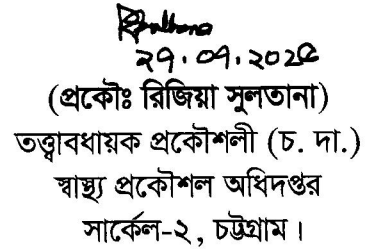 ২৭.০৭.২০২৫
(প্রকৌঃ রিজিয়া সুলতানা)
তত্ত্বাবধায়ক প্রকৌশলী (চ. দা.)
স্বাস্থ্য প্রকৌশল অধিদপ্তর
সার্কেল-২, চট্টগ্রাম।